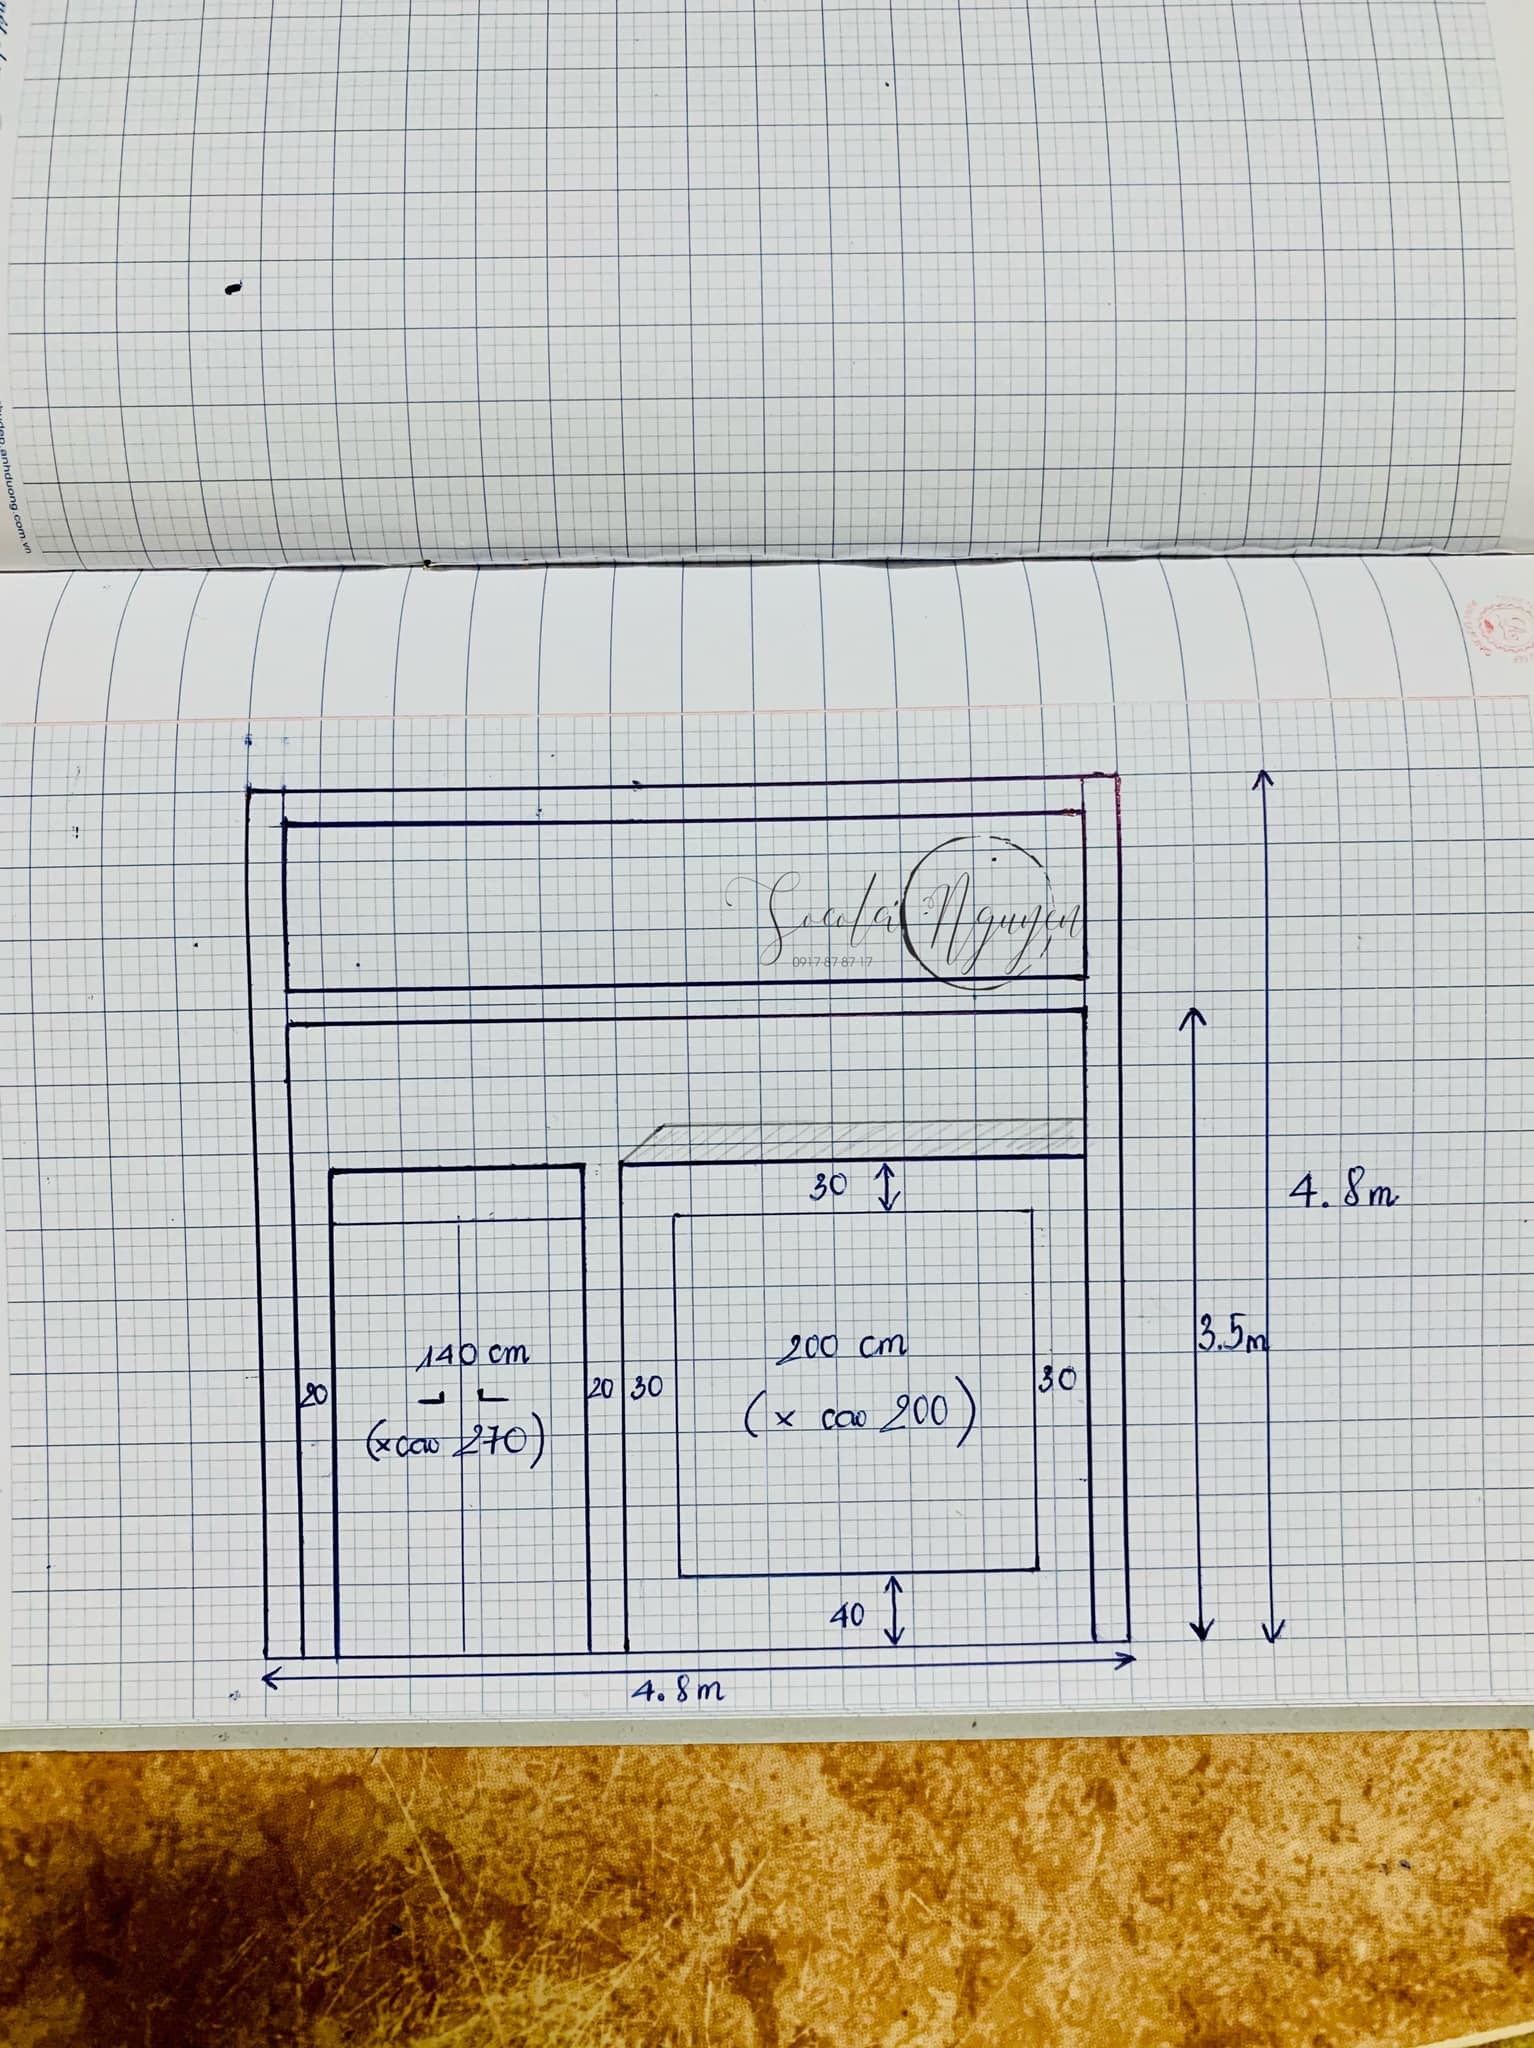 Socolai Nguyen
0917 87 87 17
30
4.8m
3.5m
140 cm
(x cao 270)
20
20
30
200 cm
(x cao 200)
30
40
4.8m